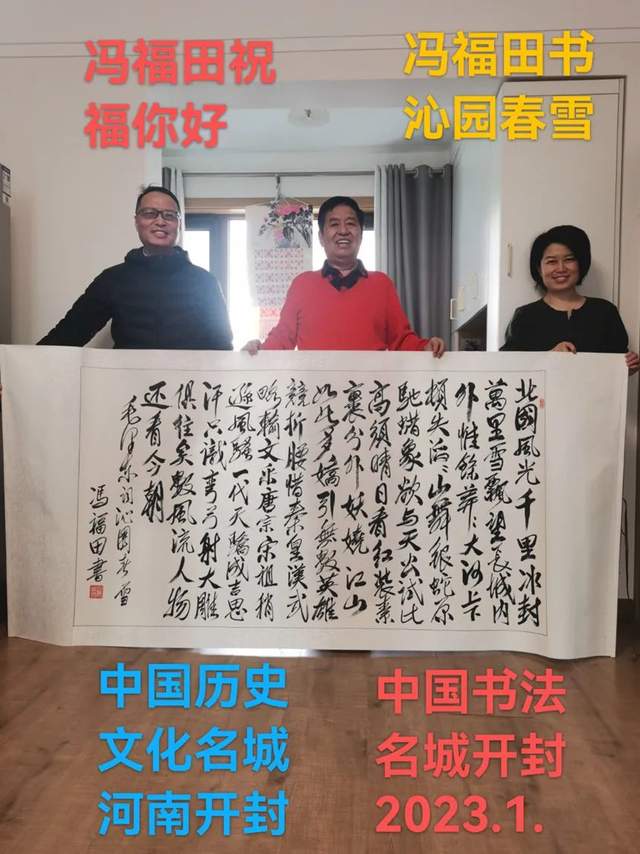 冯福田祝
福你好
冯福田书
沁园春雪
北國風光千里冰封
萬里雪飄望長城内
外惟餘莽々大河上下
頓失滔々山舞銀蛇原
馳蜡象欲与天公試比
高須晴日看红装素
裹分外妖嬈江山
如此多嬌引無數英雄
競折腰惜秦皇漢武
略輸文采唐宗宋祖稍
遜風騷一代天驕成吉思
汗只識彎弓射大雕
俱往矣數風流人物
还看今朝
毛泽东词沁園春雪
馮福田書
中国历史
文化名城
河南开封
中国书法
名城开封
2023.1.